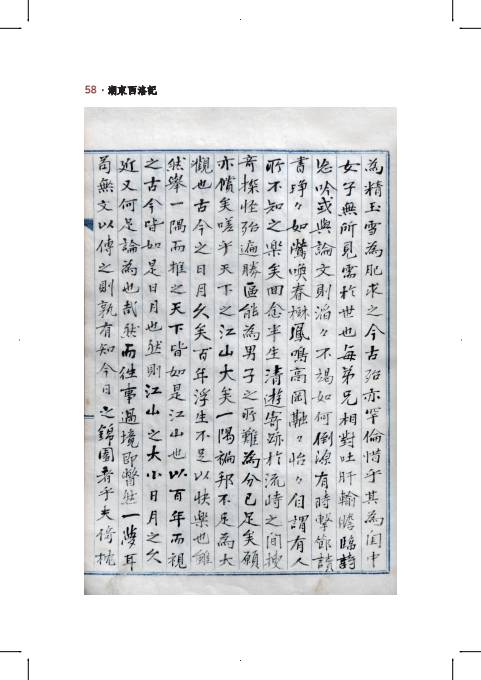 58 · 湖東西洛記
為精玉雪為肥求之今古殆亦罕倫惜乎其為閨中
女子無所見需於世也每弟兄相對吐肝輸膽臨詩
恣吟或與論文則滔々不竭如何倒源有時擊節讀
書琤々如鶯喚春林鳳鳴高岡融々怡々自謂有人
所不知之樂矣回念半生清遊寄跡於流峙之間搜
奇探怪殆遍勝區能為男子之所難為分已足矣願
亦償矣嗟乎天下之江山大矣一隅褊邦不足為大
觀也古今之日月久矣百年浮生不足以快樂也雖
然舉一隅而推之天下皆如是江山也以百年而視
之古今皆如是日月也然則江山之大小日月之久
近又何足論為也哉然而往事過境即瞥然一夢耳
苟無文以傳之則孰有知今日之錦園者乎夫倚枕